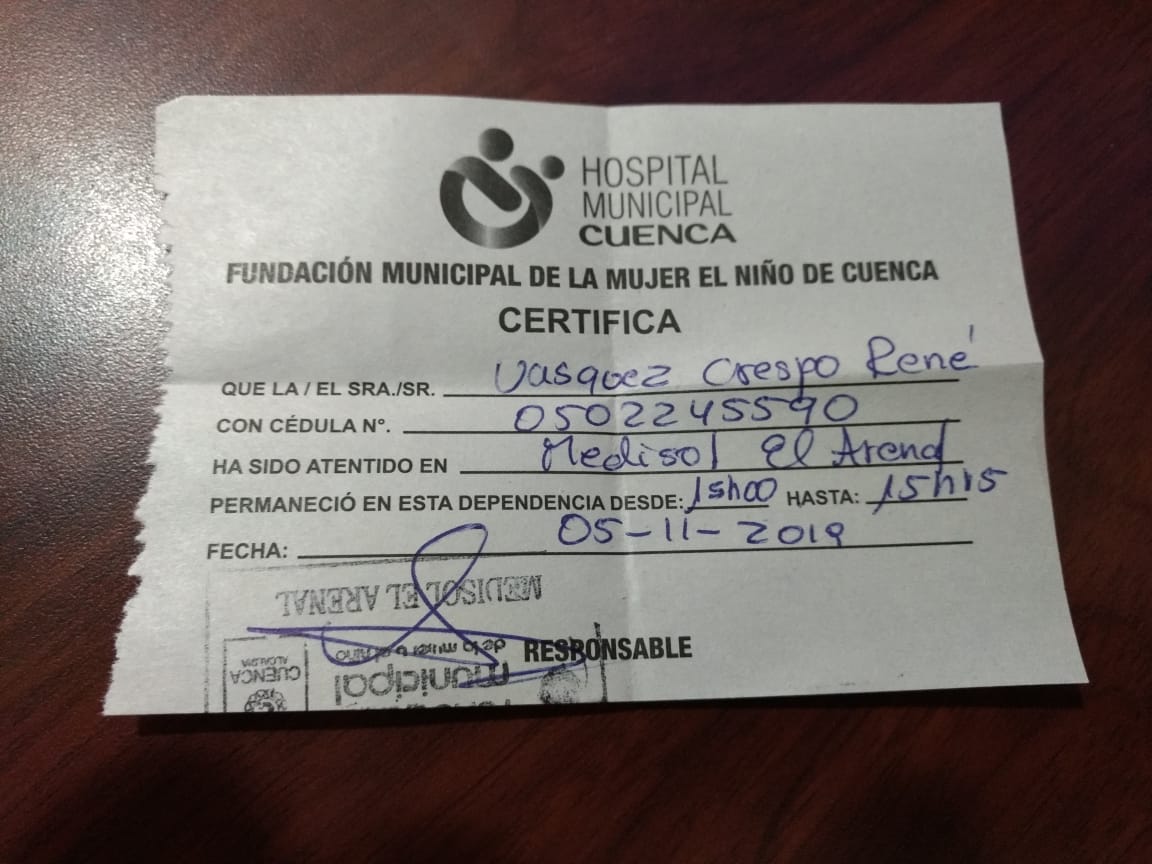 HOSPITAL
MUNICIPAL
CUENCA
FUNDACIÓN MUNICIPAL DE LA MUJER EL NIÑO DE CUENCA
CERTIFICA
QUE LA / EL SRA./SR. Vasquez Crespo René
CON CÉDULA Nº. 0502245590
HA SIDO ATENTIDO EN Medisol El Arenal
PERMANECIÓ EN ESTA DEPENDENCIA DESDE: 15h00 HASTA: 15h15
FECHA: 05-11-2019
MEDISOL EL ARENAL
RESPONSABLE
de la mujer y el niño
municipal
CUENCA
ALCALDÍA